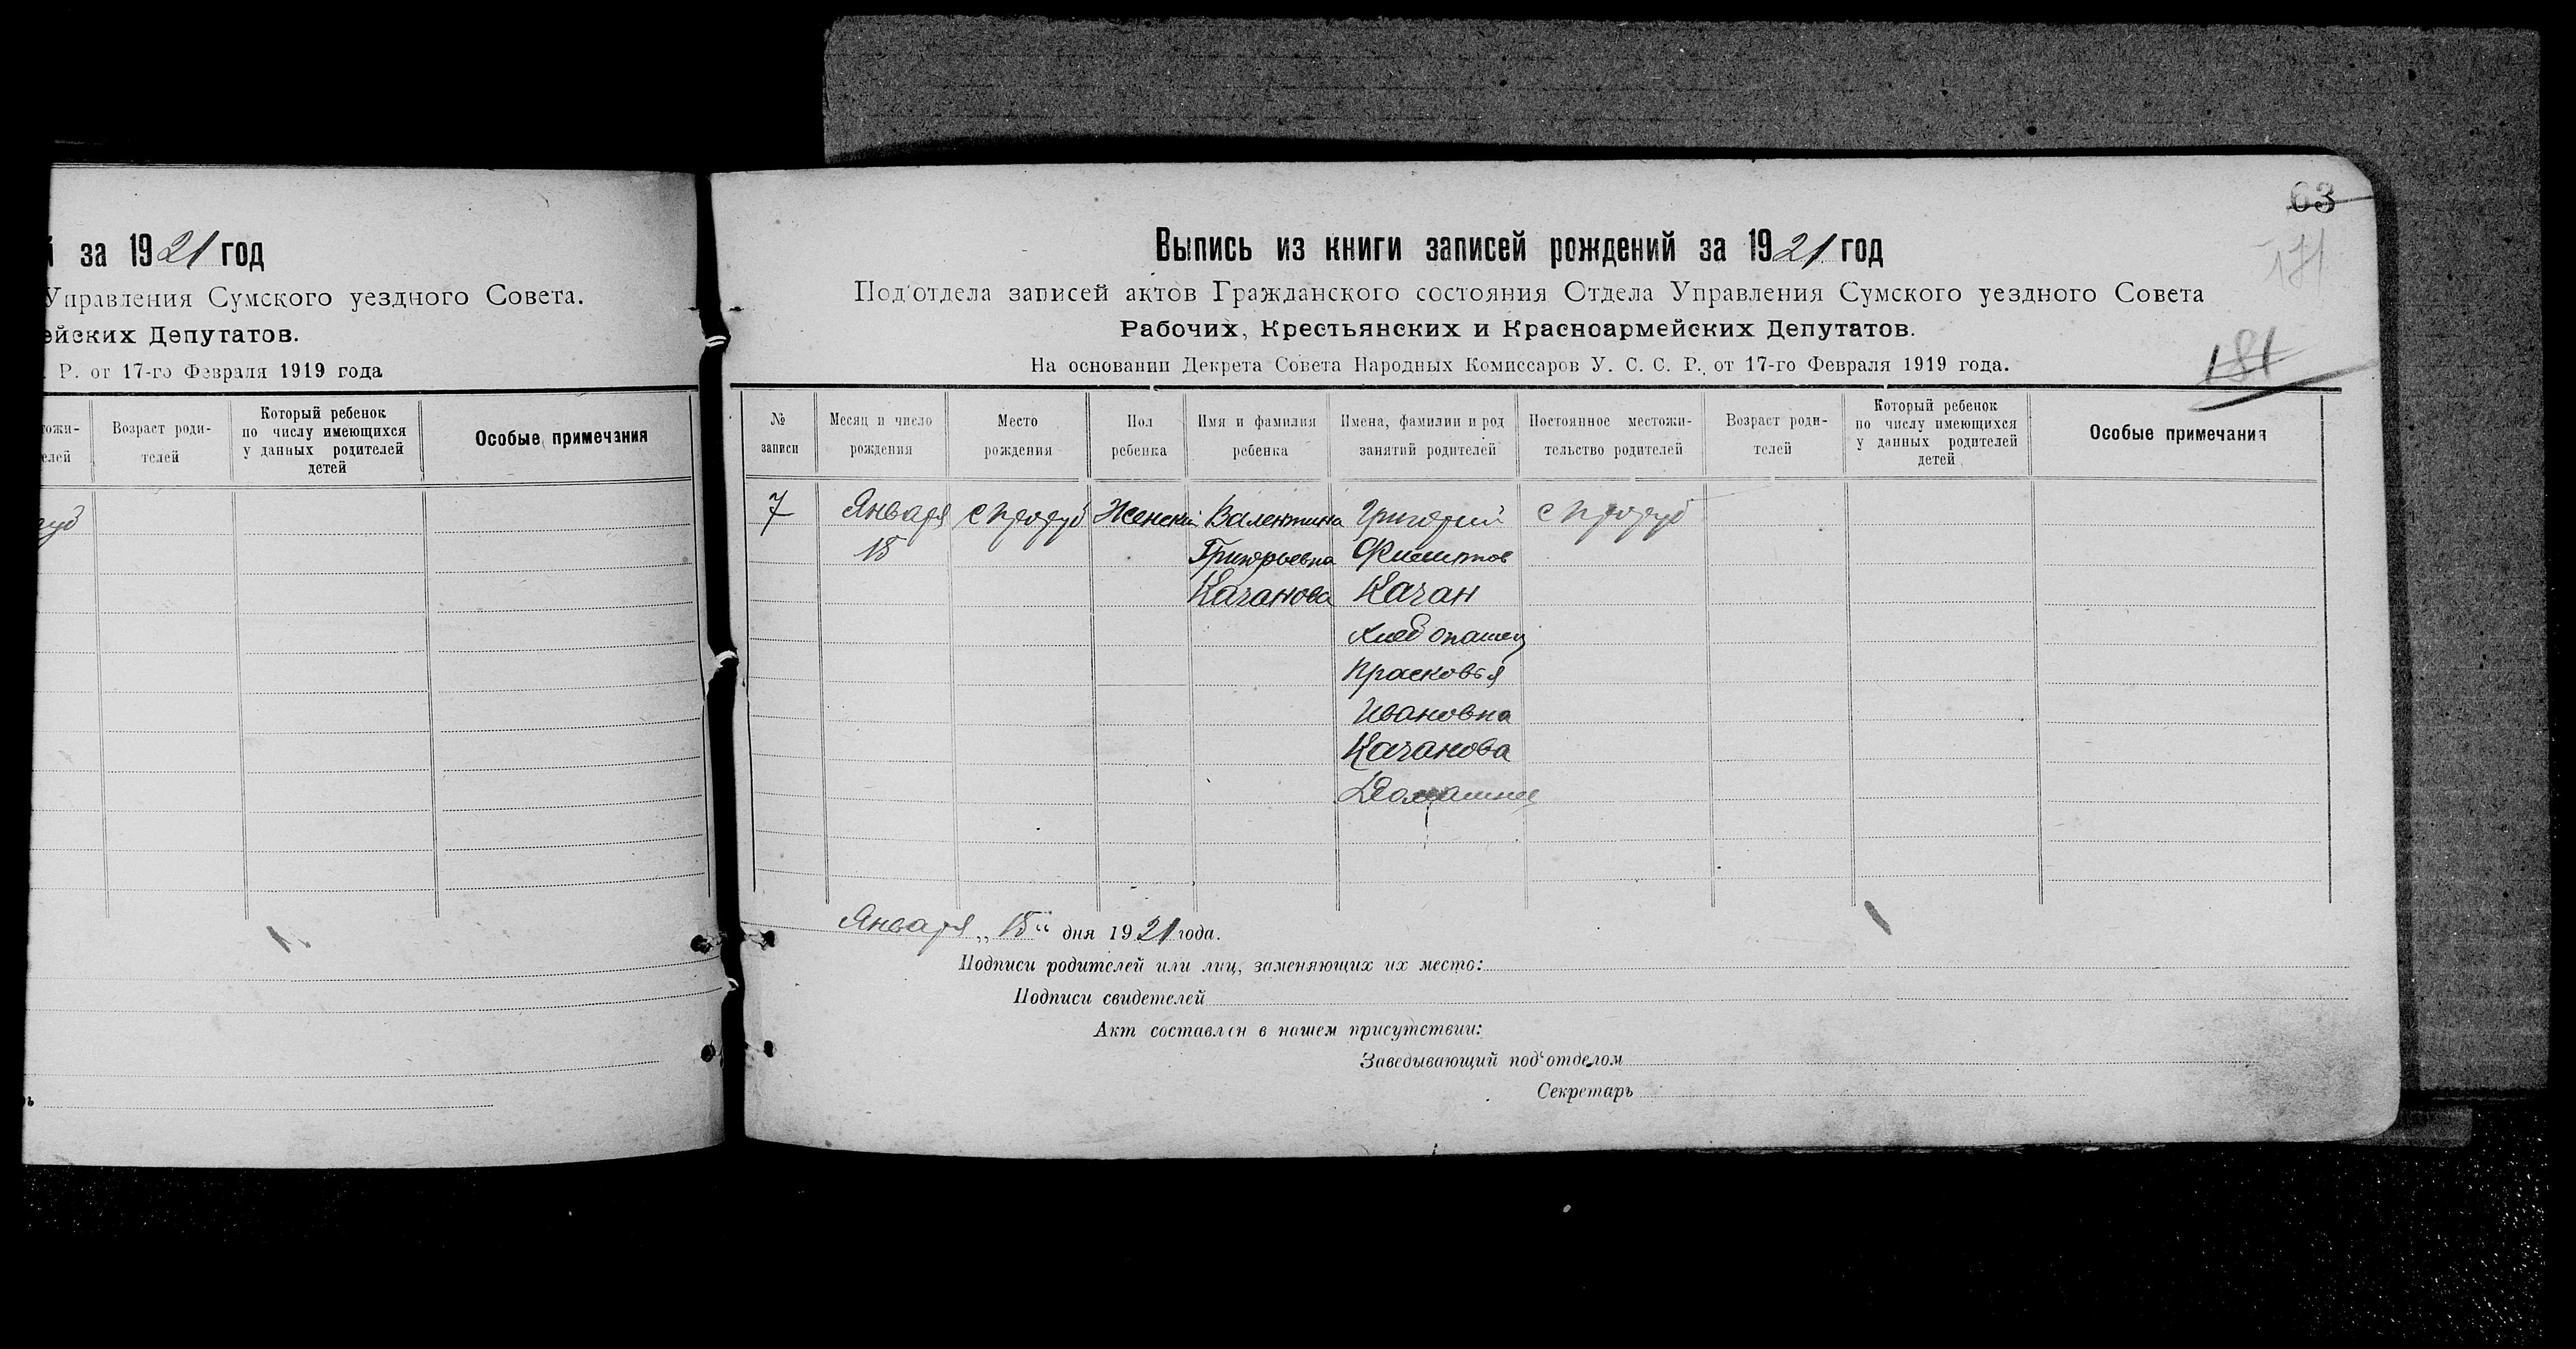 й за 1921 год
Управления Сумского уездного Совета.
ейских Депутатов.
. Р. от 17-го Февраля 1919 года
тожи-
елей
Возраст роди-
телей
Который ребенок
по числу имеющихся
у данных родителей
детей
Особые примечания
63
171
181
Выпись из книги записей рождений за 1921 год
Под'отдела записей актов Гражданского состояния Отдела Управления Сумского уездного Совета
Рабочих, Крестьянских и Красноармейских Депутатов.
На основании Декрета Совета Народных Комиссаров У. С. С. Р., от 17-го Февраля 1919 года.
№
записи
Месяц и число
рождения
Место
рождения
Пол
ребенка
Имя и фамилия
ребенка
Имена, фамилии и род
занятий родителей
Постоянное местожи-
тельство родителей
Возраст роди-
телей
Который ребенок
по числу имеющихся
у данных родителей
детей
Особые примечания
7
Января
15
Женский
Валентина
Григорьевна
Качанова
Григорий
Качан
Хлебопашец
Прасковья
Ивановна
Качанова
Января „15“ дня 1921 года.
Подписи родителей или лиц, заменяющих их место:
Подписи свидетелей
Акт составлен в нашем присутствии:
Заведывающий под'отделом
Секретарь